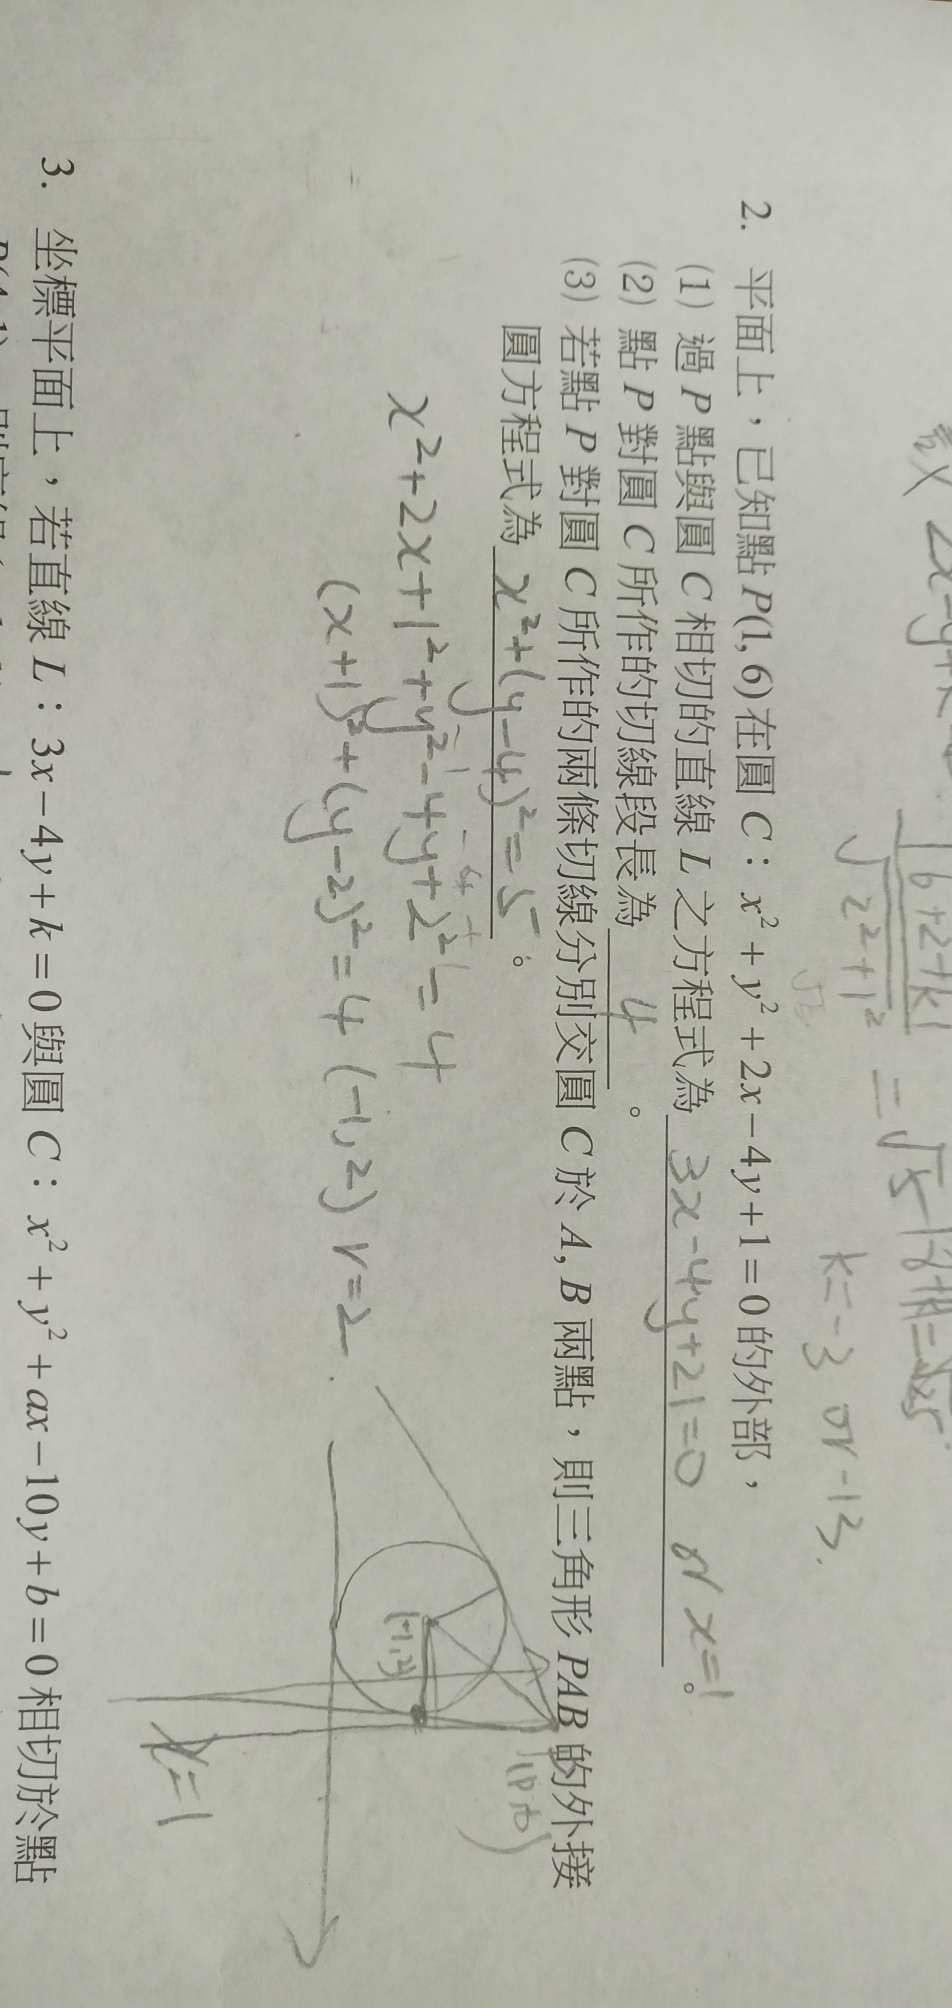 2x-y+k
|6+2+k|
√2²+1²
=√5
k=-3 or -13.
2. 平面上，已知點P(1, 6)在圓C：x²+y²+2x-4y+1=0的外部，
(1) 過P點與圓C相切的直線L之方程式為 3x-4y+21=0 or x=1。
(2) 點P對圓C所作的切線段長為 4 。
(3) 若點P對圓C所作的兩條切線分別交圓C於A, B兩點，則三角形PAB的外接
圓方程式為 x²+(y-4)²=5 。
x²+2x+1²+y²-4y+2²=4
(x+1)²+(y-2)²=4 (-1,2) r=2
(-1,2)
x=1
3. 坐標平面上，若直線L：3x-4y+k=0與圓C：x²+y²+ax-10y+b=0相切於點